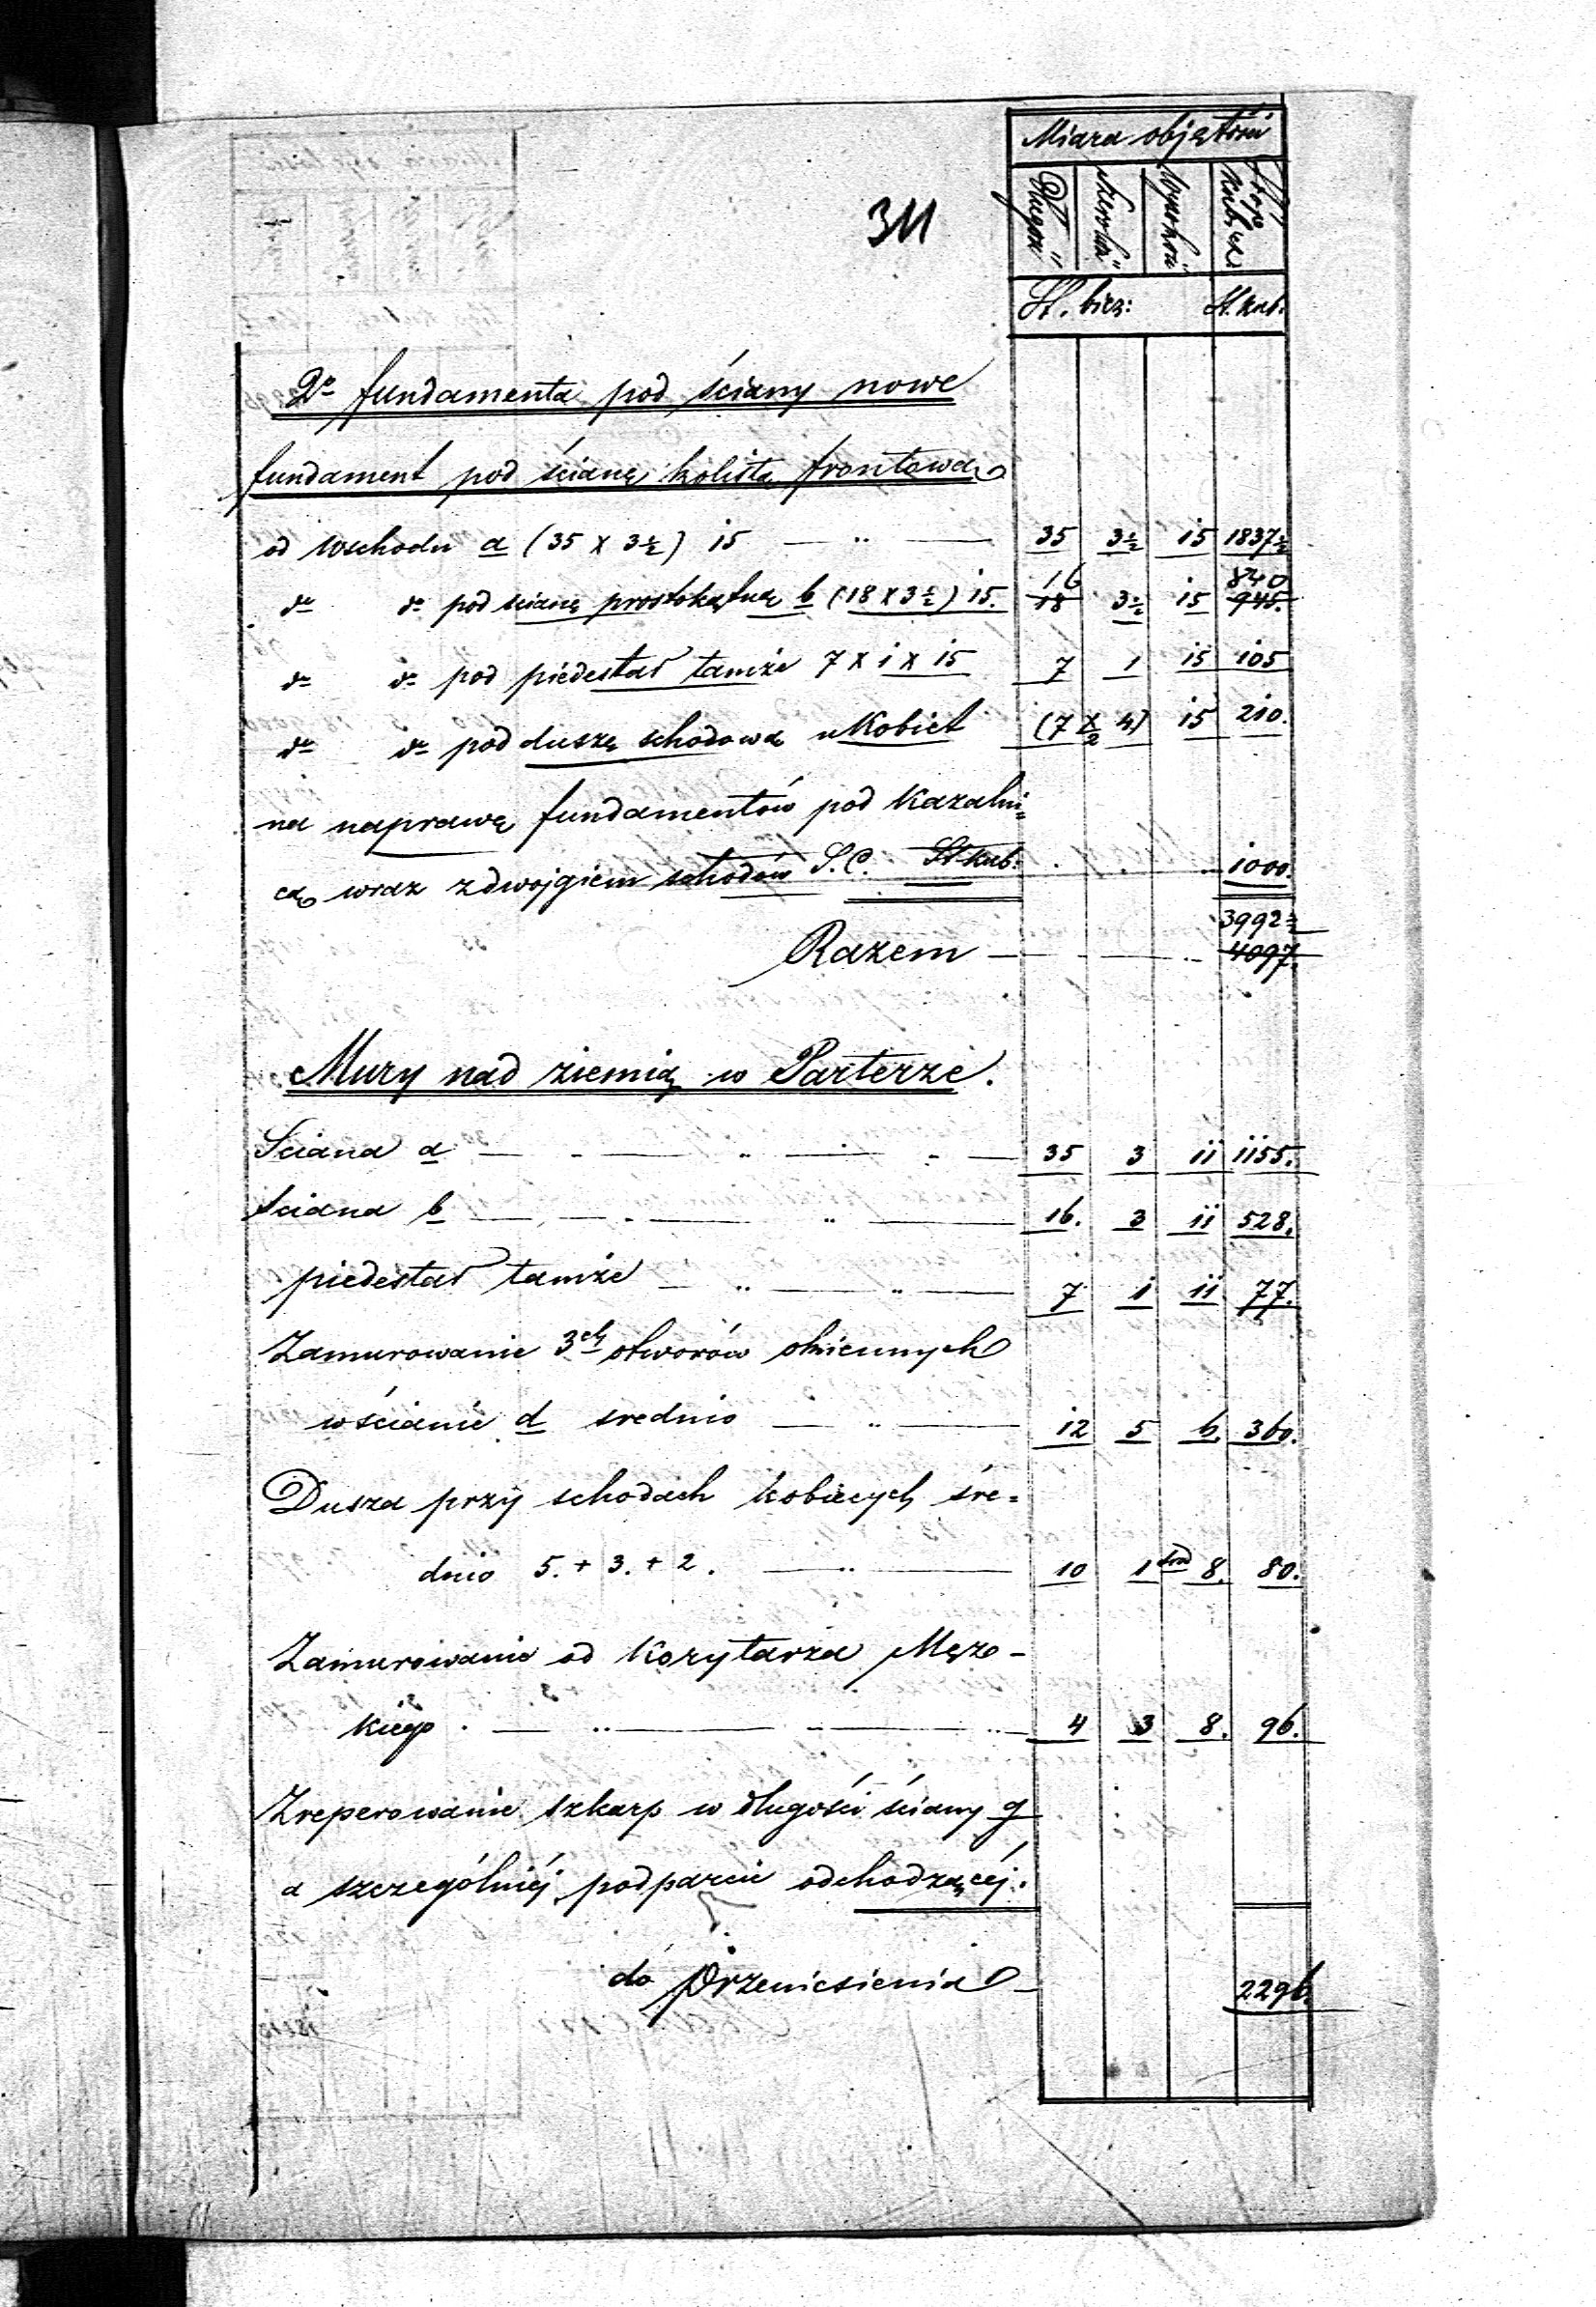 Miara objętości
311
Długość Szerokość Wysokość Stopy kubicz.
St. bież: St. kub.
2o fundamenta pod ściany nowe
fundament pod ścianę kolistą frontową
od Wschodu a (35 x 3½) 15 — „ — 35 3½ 15 1837½
do do pod ścianę prostokątną b (18 x 3½) 15. 16 18 3½ 15 840 945.
do do pod piedestał tamże 7 x 1 x 15 7 1 15 105
do do pod duszę schodową u Kobiet (7 x/2 4) 15 210.
na naprawę fundamentów pod Kazalni=
cą wraz z dwojgiem schodów S.C. St kub: 1000.
3992½
Razem — 4097.
Mury nad ziemią w Parterze.
Sciana a — 35 3 11 1155.
Sciana b — 16. 3 11 528.
piedestał tamże — 7 1 11 77.
Zamurowanie 3ch otworów okiennych
w ścianie d srednio — 12 5 6. 360.
Dusza przy schodach kobiecych śre=
dnio 5. + 3. + 2. — 10 1 śred 8. 80.
Zamurowanie od Korytarza Męzo-
kiego . — 4 3 8. 96.
Zreperowanie szkarp w długości ściany g
a szczególniéj podparcie odchodzącéj.
do Przeniesienia — 2296.